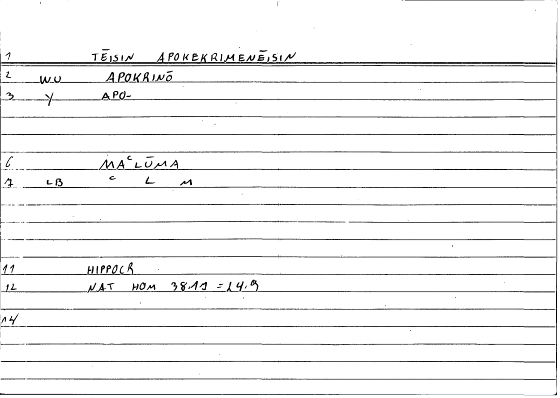 1 TĒISIN APOKEKRIMENĒISIN
2 WU APOKRINŌ
3 Y APO-
6 MAᶜLŪMA
7 LB ᶜ L M
11 HIPPOCR
12 NAT HOM 38.11 = 14.9
14